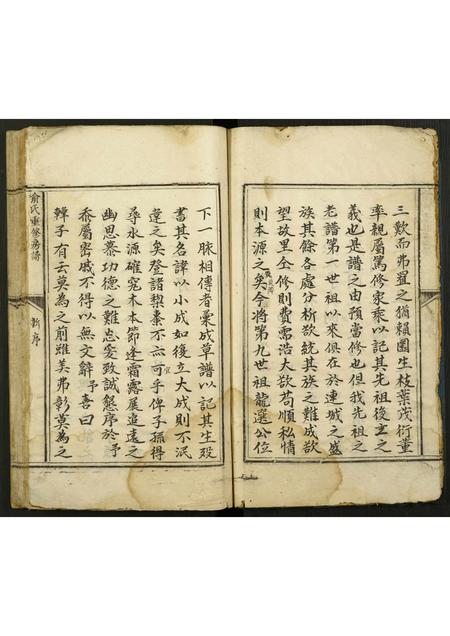 三歎而弗置之猶賴園生枝葉茂衍董
率親屬篤修家乘以記其先祖後立之
義也是譜之由預當修也但我先祖之
老譜第一世祖以來俱在於連城之盛
族其餘各處分析欲統其族之難成欲
望故里全修則費需浩大欲苟順私情
則本源之矣今將第九世祖龍選公位
下一脉相傳者彙成草譜以記其生殁
書其名諱以小成如後立大成則不泯
違之矣登諸梨棗不亦可乎俾子孫得
尋水源確究木本節逢霜露展追遠之
幽思慕功德之難忘爰致誠懇序於予
忝屬密戚不得以無文辭予喜曰
韓子有云莫為之前雖美弗彰莫為之
俞氏重修房譜
新序